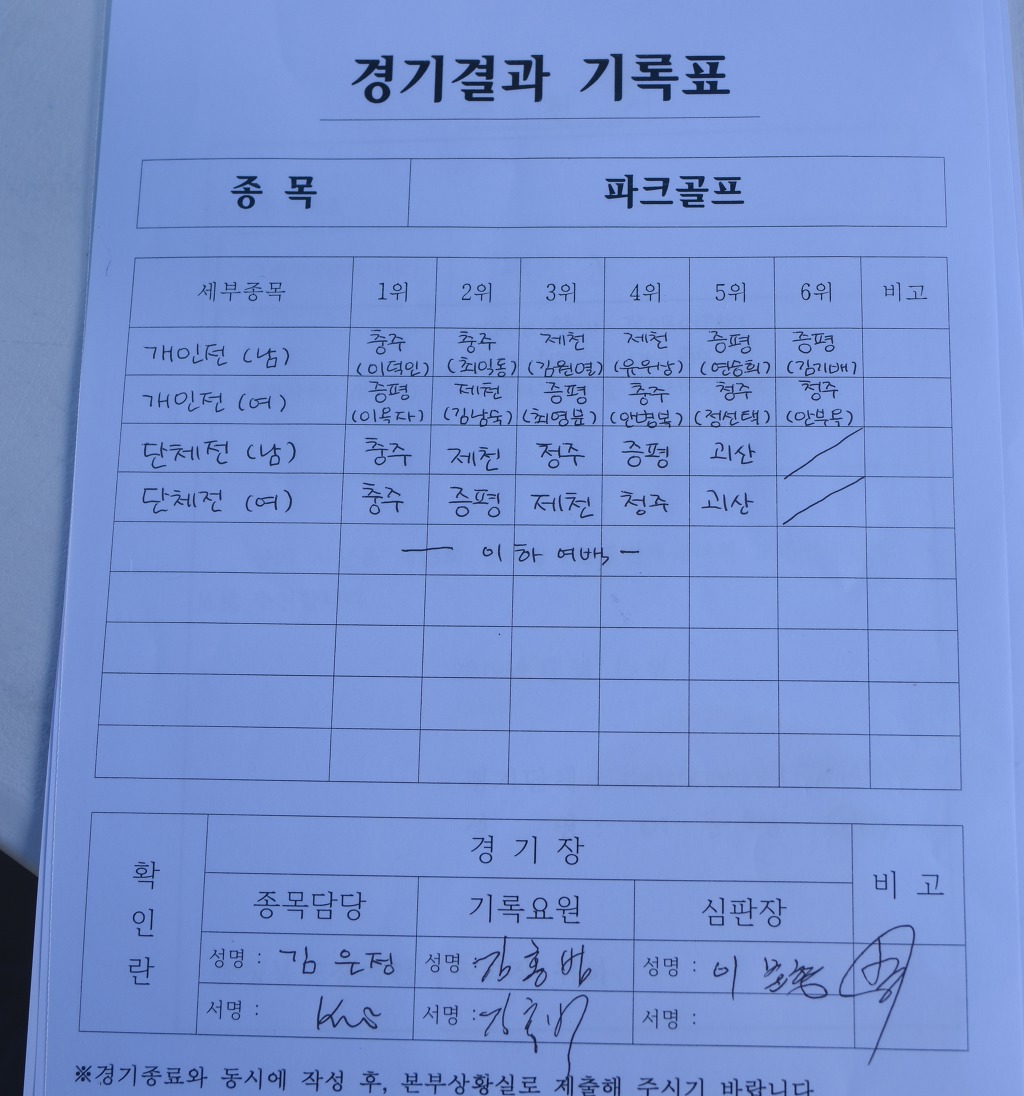 경기결과 기록표
종 목 파크골프
세부종목 1위 2위 3위 4위 5위 6위 비고
개인전 (남) 충주 충주 제천 제천 증평 증평
(이덕인) (최익동) (김원열) (연승회) (김기배)
개인전 (여) 증평 제천 증평 충주 청주 청주
(이옥자) (김남숙) (최영분) (안병복) (정선택) (안부옥)
단체전 (남) 충주 제천 청주 증평 괴산
단체전 (여) 충주 증평 제천 청주 괴산
이하여백
확인란
경 기 장
비 고
종목담당 기록요원 심판장
성명 : 김은정 성명 : 김홍범 성명 : 이
서명 : 서명 : 서명 :
※경기종료와 동시에 작성 후, 본부상황실로 제출해 주시기 바랍니다